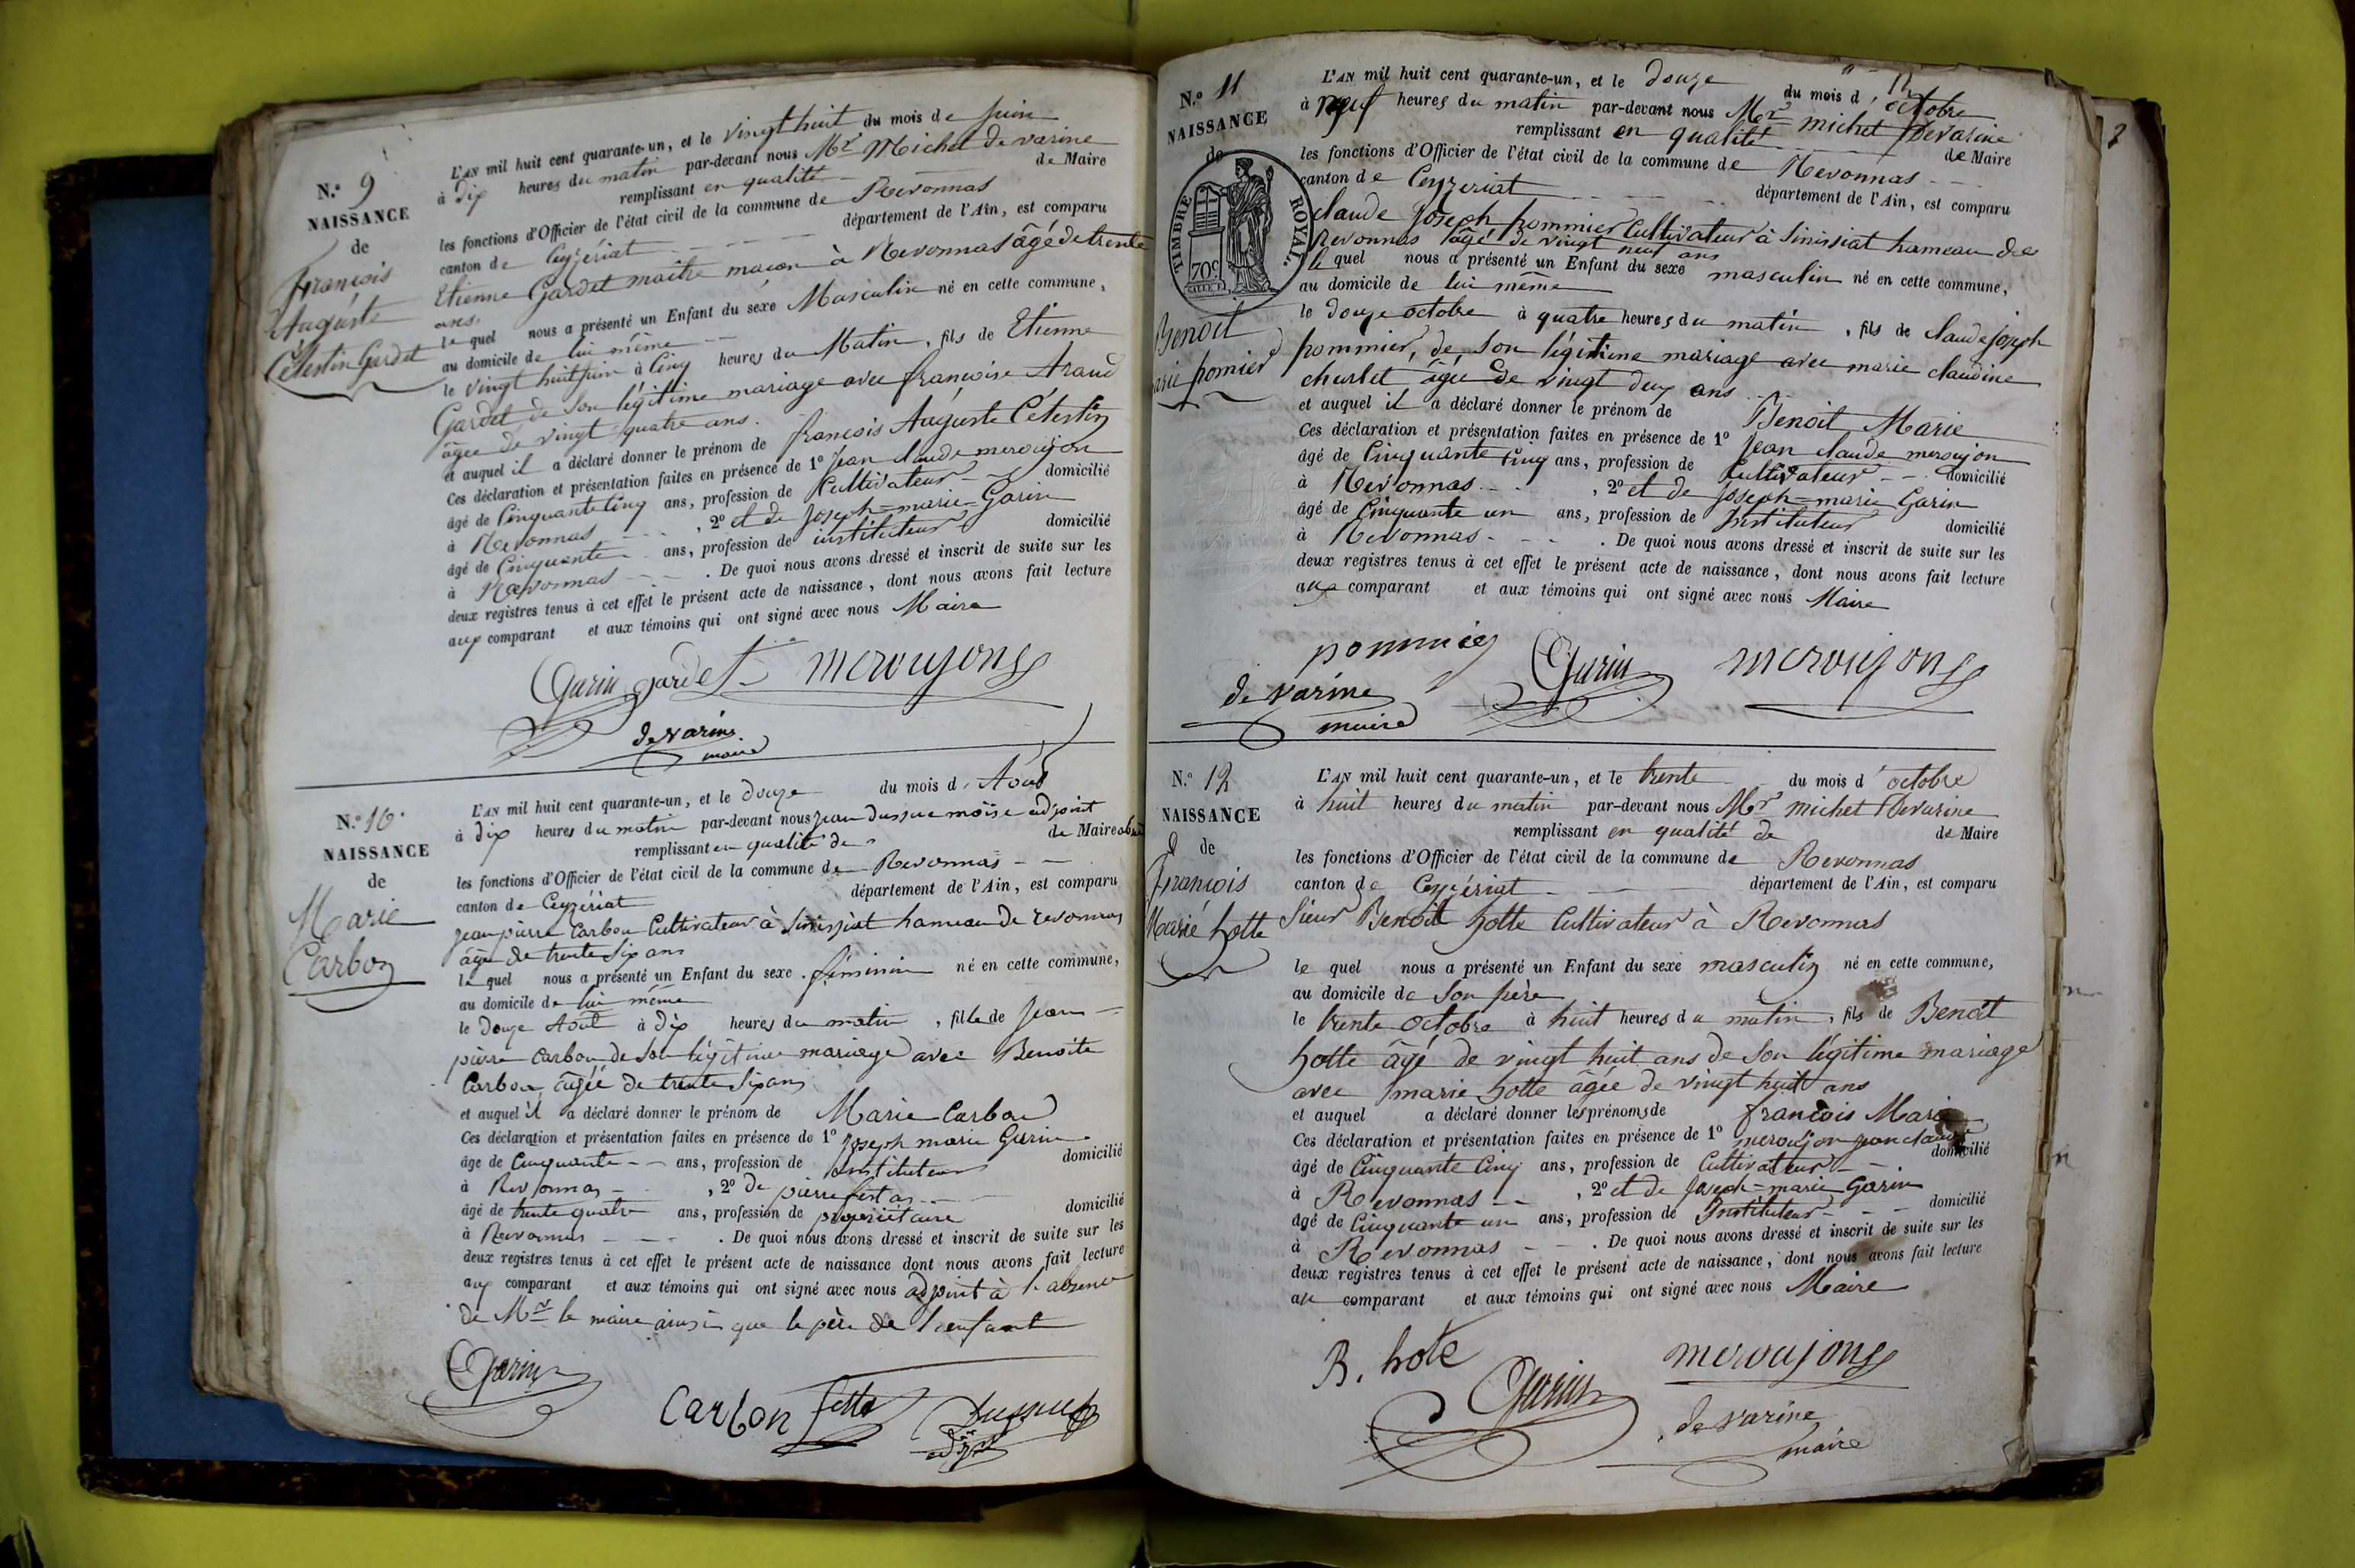 N.° 9
NAISSANCE
de
François
Auguste
Célestin Gardet
L'AN mil huit cent quarante-un, et le vingt huit du mois de Juin
à dix heures du matin par-devant nous Mr Michel de varine
remplissant en qualité de Maire
les fonctions d'Officier de l'état civil de la commune de Revonnas
canton de Ceyzériat département de l'Ain, est comparu
Etienne Gardet maître maçon à Revonnas âgé de trente
ans
le quel nous a présenté un Enfant du sexe Masculin né en cette commune,
au domicile de lui même
le vingt huit juin à Cinq heures du Matin, fils de Etienne
Gardet de son légitime mariage avec françoise Araud
âgée de vingt quatre ans.
et auquel il a déclaré donner le prénom de françois Auguste Célestin
Ces déclaration et présentation faites en présence de 1° Jean claude meroujon
âgé de Cinquante Cinq ans, profession de Cultivateur domicilié
à Revonnas , 2° et de Joseph=marie=Garin
âgé de Cinquante ans, profession de instituteur domicilié
à Revonnas . De quoi nous avons dressé et inscrit de suite sur les
deux registres tenus à cet effet le présent acte de naissance, dont nous avons fait lecture
aux comparant et aux témoins qui ont signé avec nous Maire
Garin gardet meroujon
de varine
maire
N.° 10.
NAISSANCE
de
Marie
Carbon
L'AN mil huit cent quarante-un, et le douze du mois d'Août
à dix heures du matin par-devant nous jean dussue moïse adjoint
remplissant en qualité de de Maire
les fonctions d'Officier de l'état civil de la commune de Revonnas
canton de Ceyzériat département de l'Ain, est comparu
jean pierre Carbon Cultivateur à Sinissiat hameau de revonnas
âgé de trente six ans
le quel nous a présenté un Enfant du sexe féminin né en cette commune,
au domicile de lui même
le douze Août à dix heures du matin, fille de Jean
pierre Carbon de son légitime mariage avec Benoite
Carbon âgée de trente six ans
et auquel il a déclaré donner le prénom de Marie Carbon
Ces déclaration et présentation faites en présence de 1° Joseph marie Garin
âgé de Cinquante ans, profession de Instituteur domicilié
à Revonnas , 2° de pierre
âgé de trente quatre ans, profession de propriétaire domicilié
à Revonnas . De quoi nous avons dressé et inscrit de suite sur les
deux registres tenus à cet effet le présent acte de naissance dont nous avons fait lecture
aux comparant et aux témoins qui ont signé avec nous adjoint à l'absence
de Mr le maire ainsi que le père de l'enfant
Garin
Carbon
N.° 11
NAISSANCE
de
TIMBRE ROYAL.
70c
Benoit
marie pomier
L'AN mil huit cent quarante-un, et le douze du mois d'octobre
à neuf heures du matin par-devant nous Mr michel Devarine
remplissant en qualité de Maire
les fonctions d'Officier de l'état civil de la commune de Revonnas
canton de Ceyzeriat département de l'Ain, est comparu
claude Joseph pommier Cultivateur à Sinissiat hameau de
Revonnas âgé de vingt neuf ans
le quel nous a présenté un Enfant du sexe masculin né en cette commune,
au domicile de lui même
le douze octobre à quatre heures du matin, fils de claude joseph
pommier, de son légitime mariage avec marie claudine
churlet âgée de vingt deux ans
et auquel il a déclaré donner le prénom de Benoit Marie
Ces déclaration et présentation faites en présence de 1° Jean claude meroujon
âgé de Cinquante Cinq ans, profession de Cultivateur domicilié
à Revonnas , 2° et de Joseph=marie Garin
âgé de Cinquante un ans, profession de Instituteur domicilié
à Revonnas . De quoi nous avons dressé et inscrit de suite sur les
deux registres tenus à cet effet le présent acte de naissance, dont nous avons fait lecture
aux comparant et aux témoins qui ont signé avec nous Maire
pommier Garin meroujon
de varine
maire
N.° 12
NAISSANCE
de
François
Marie hotte
L'AN mil huit cent quarante-un, et le trente du mois d'octobre
à huit heures du matin par-devant nous Mr michel Devarine
remplissant en qualité de de Maire
les fonctions d'Officier de l'état civil de la commune de Revonnas
canton de Ceyzériat département de l'Ain, est comparu
Sieur Benoît hotte Cultivateur à Revonnas
le quel nous a présenté un Enfant du sexe masculin né en cette commune,
au domicile de son père
le trente octobre à huit heures du matin, fils de Benoît
hotte âgé de vingt huit ans de son légitime mariage
avec marie hotte âgée de vingt huit ans
et auquel a déclaré donner les prénoms de françois Marie
Ces déclaration et présentation faites en présence de 1° meroujon jean claude
âgé de Cinquante Cinq ans, profession de Cultivateur domicilié
à Revonnas , 2° et de joseph=marie Garin
âgé de Cinquante un ans, profession de Instituteur domicilié
à Revonnas . De quoi nous avons dressé et inscrit de suite sur les
deux registres tenus à cet effet le présent acte de naissance, dont nous avons fait lecture
au comparant et aux témoins qui ont signé avec nous Maire
B. hote Garin meroujon
de varine
maire